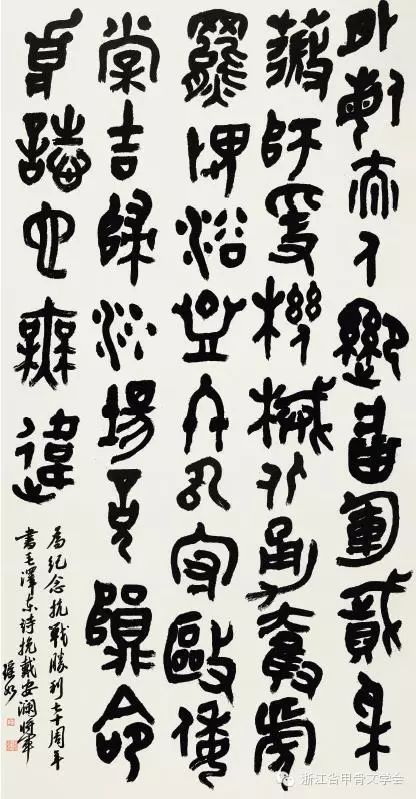 外侮需人御將軍賦采
薇師稱機械化勇奪虎
羆威浴血東瓜守驅倭
棠吉歸沙場竟殞命
壯志也無違
為紀念抗戰勝利七十周年
書毛澤東詩挽戴安瀾將軍
浙江省甲骨文学会